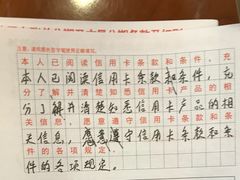 本人已阅读信用卡条款和条件，充
本人已阅读信用卡条款和条件，充
分了解并清楚知悉信用卡产品的相
分了解并清楚知悉信用卡产品的相
关信息，愿意遵守信用卡条款和条
关信息，愿意遵守信用卡条款和条
件的各项规定。
件的各项规定。